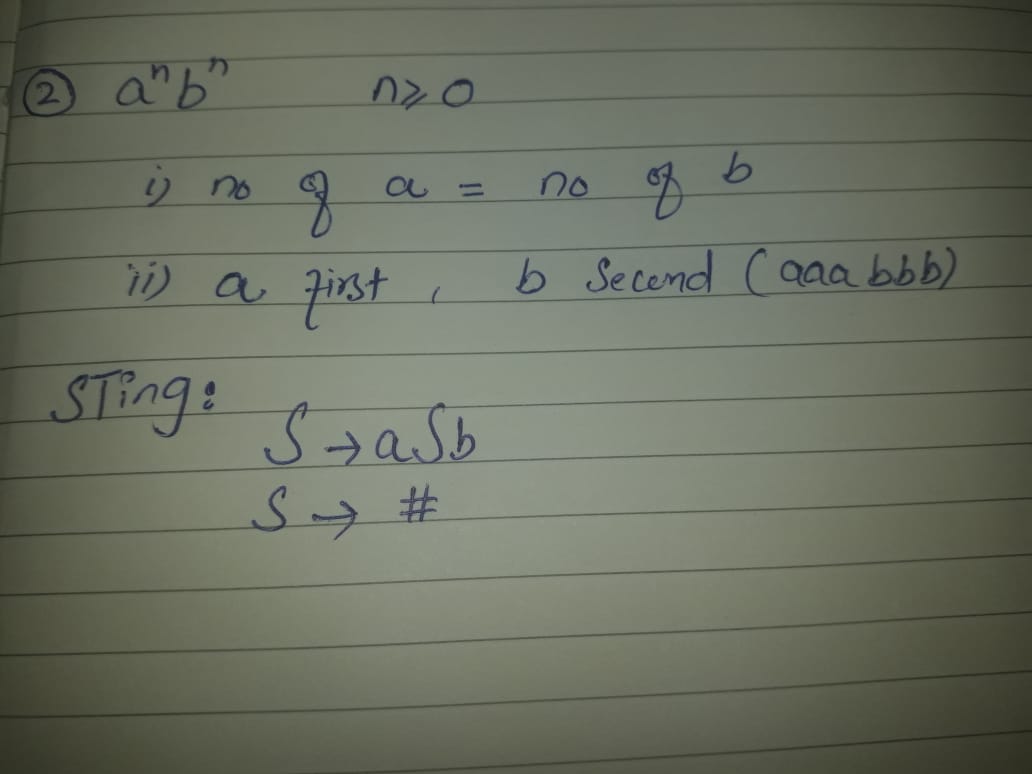 ② aⁿbⁿ n⩾0
i) no of a = no of b
ii) a first, b Second (aaabbb)
STing:
S→aSb
S→ #